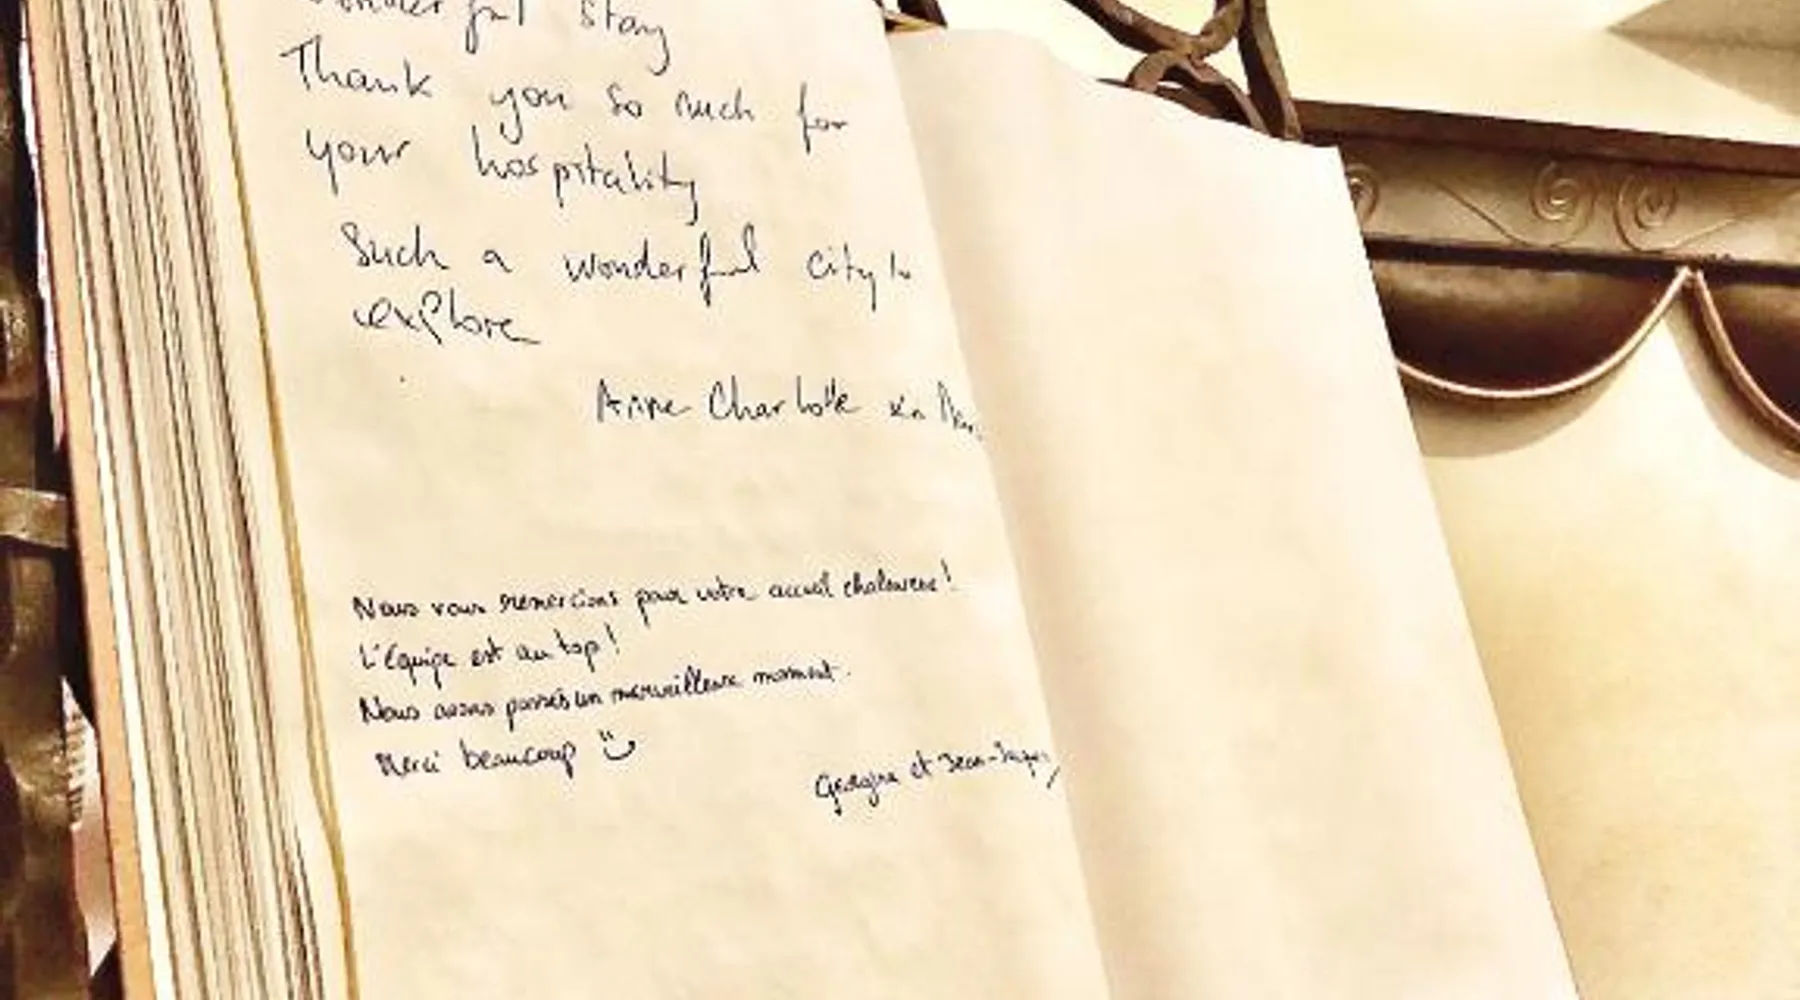 wonderful stay
Thank you so much for
your hospitality
Such a wonderful city to
explore
Anne Charlotte
Nous vous remercions pour votre accueil chaleureux !
L'équipe est au top !
Nous avons passés un merveilleux moment.
Merci beaucoup
et Jean-